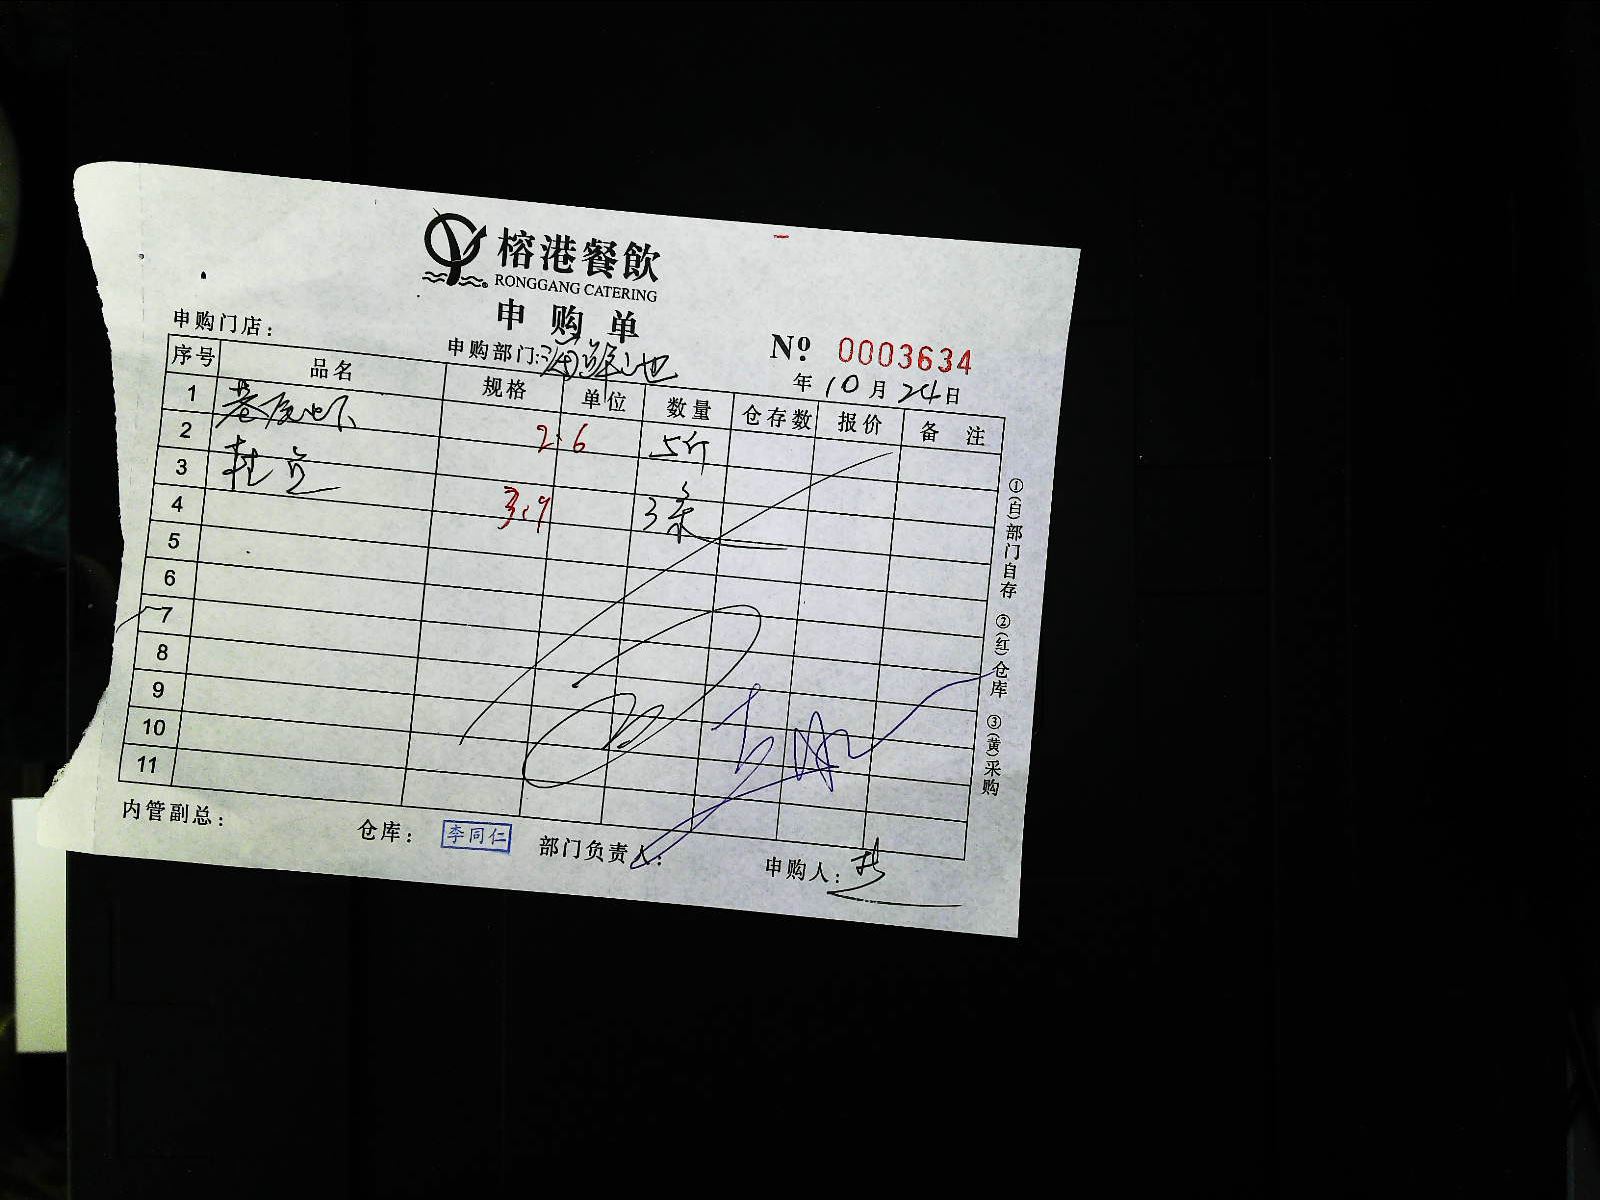 榕港餐飲
RONGGANG CATERING
申购单
申购门店：
申购部门：海鲜池
Nº 0003634
年 10 月 24 日
序号 品名 规格 单位 数量 仓存数 报价 备注
1
2 2.6 5斤
3
4 3.9 3条
5
6
7
8
9
10
11
①(白)部门自存 ②(红)仓库 ③(黄)采购
内管副总： 仓库： 李同仁 部门负责人： 申购人：